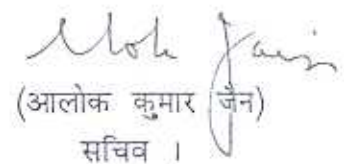 Alok Jain
(आलोक कुमार जैन)
सचिव ।